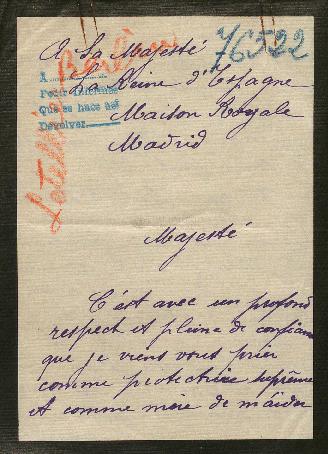 76522
A Sa Majesté
La Reine d'Espagne
A
Pedir informes
Que se hace no
Devolver
Maison Royale
Madrid
Berlin
Majesté
C'est avec un profond
respect et pleine de confiance
que je viens vous prier
comme protectrice suprême
et comme mère de m'aider